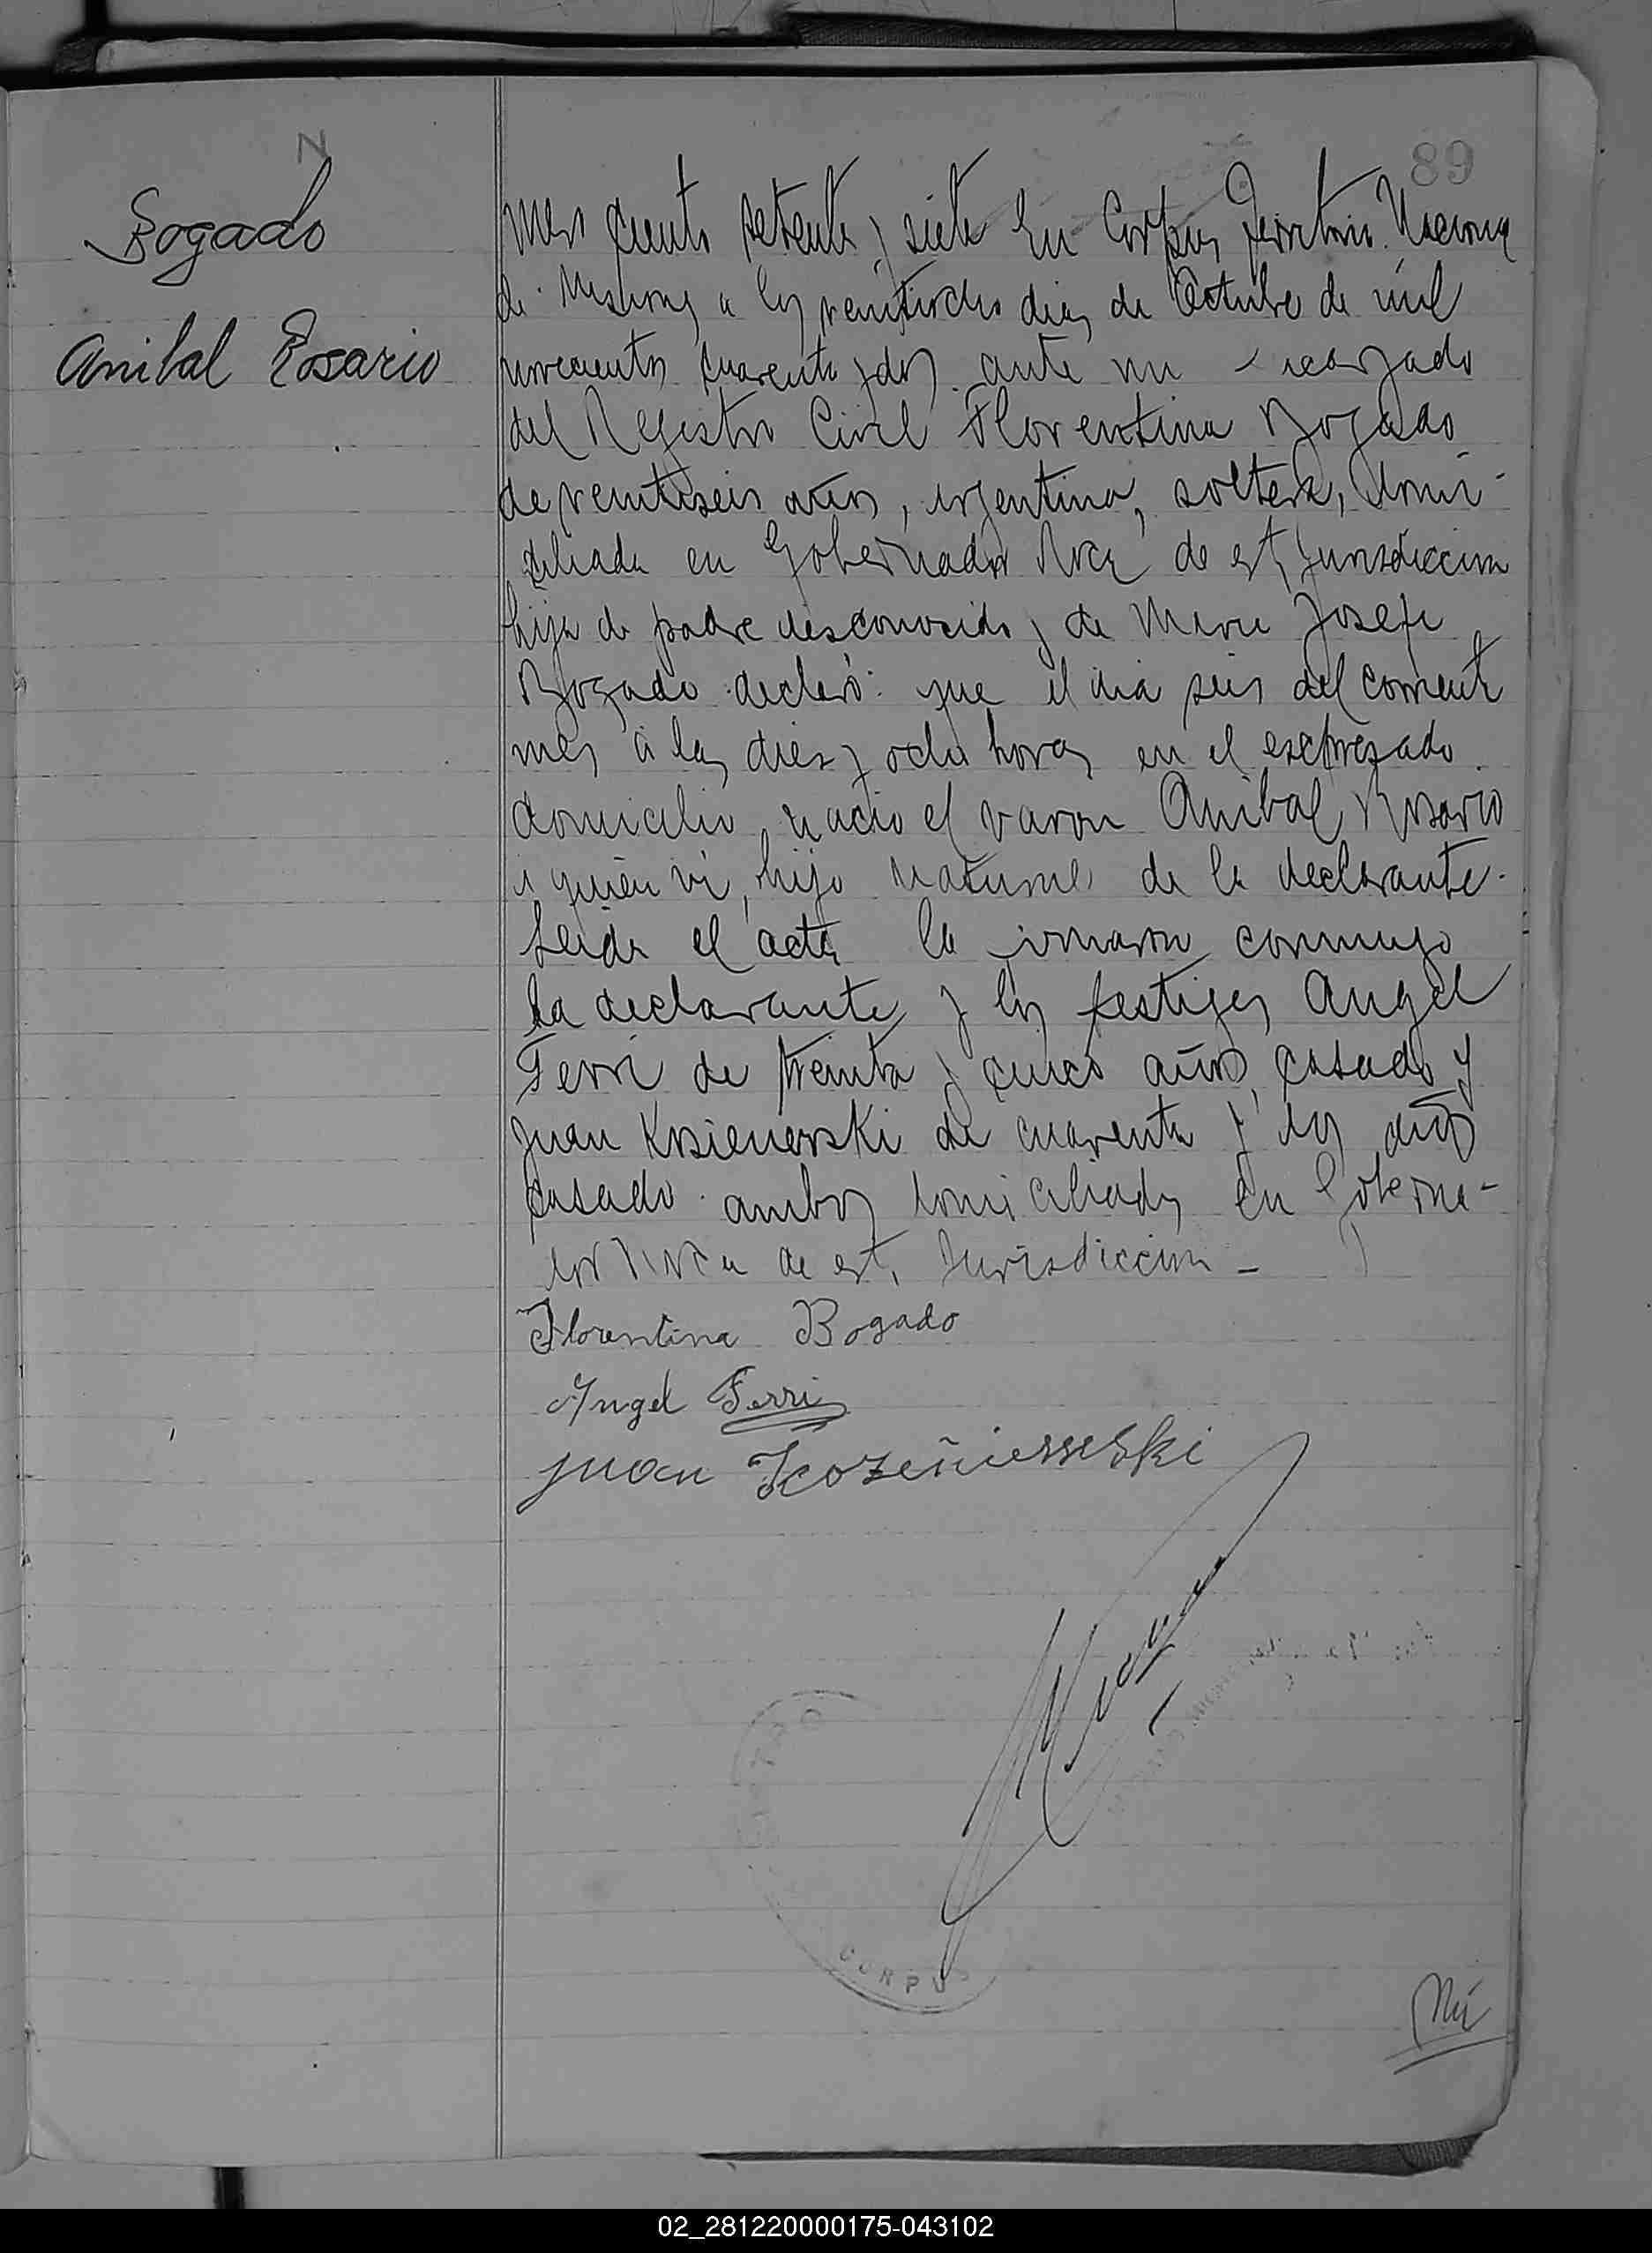 N
89
Bogado
Anibal Rosario
ciento setenta y siete En Corpus Territorio Naciona
de Misiones a los veintiocho dias de Octubre de mil
novecientos cuarenta y dos ante mi encargado
del Registro Civil Florentina Bogado
de veintiseis años, argentina, soltera, domi-
ciliada en Gobernador Roca de esta jurisdiccion
hija de padre desconocido y de Maria Josefa
Bogado declaró: que el dia seis del corriente
mes á las diez y ocho horas en el expresado
domicilio, nacio el varon Anibal Rosario
a quien vi, hijo natural de la declarante.
Leida el acta la firmaron conmigo
la declarante y los testigos Angel
Ferri de treinta y cinco años, casado y
Juan Kosienerski de cuarenta y dos años
casado ambos domiciliados en Goberna-
dor Roca de esta Jurisdiccion -
Florentina Bogado
Angel Ferri
Juan
CORPUS
02_281220000175-043102